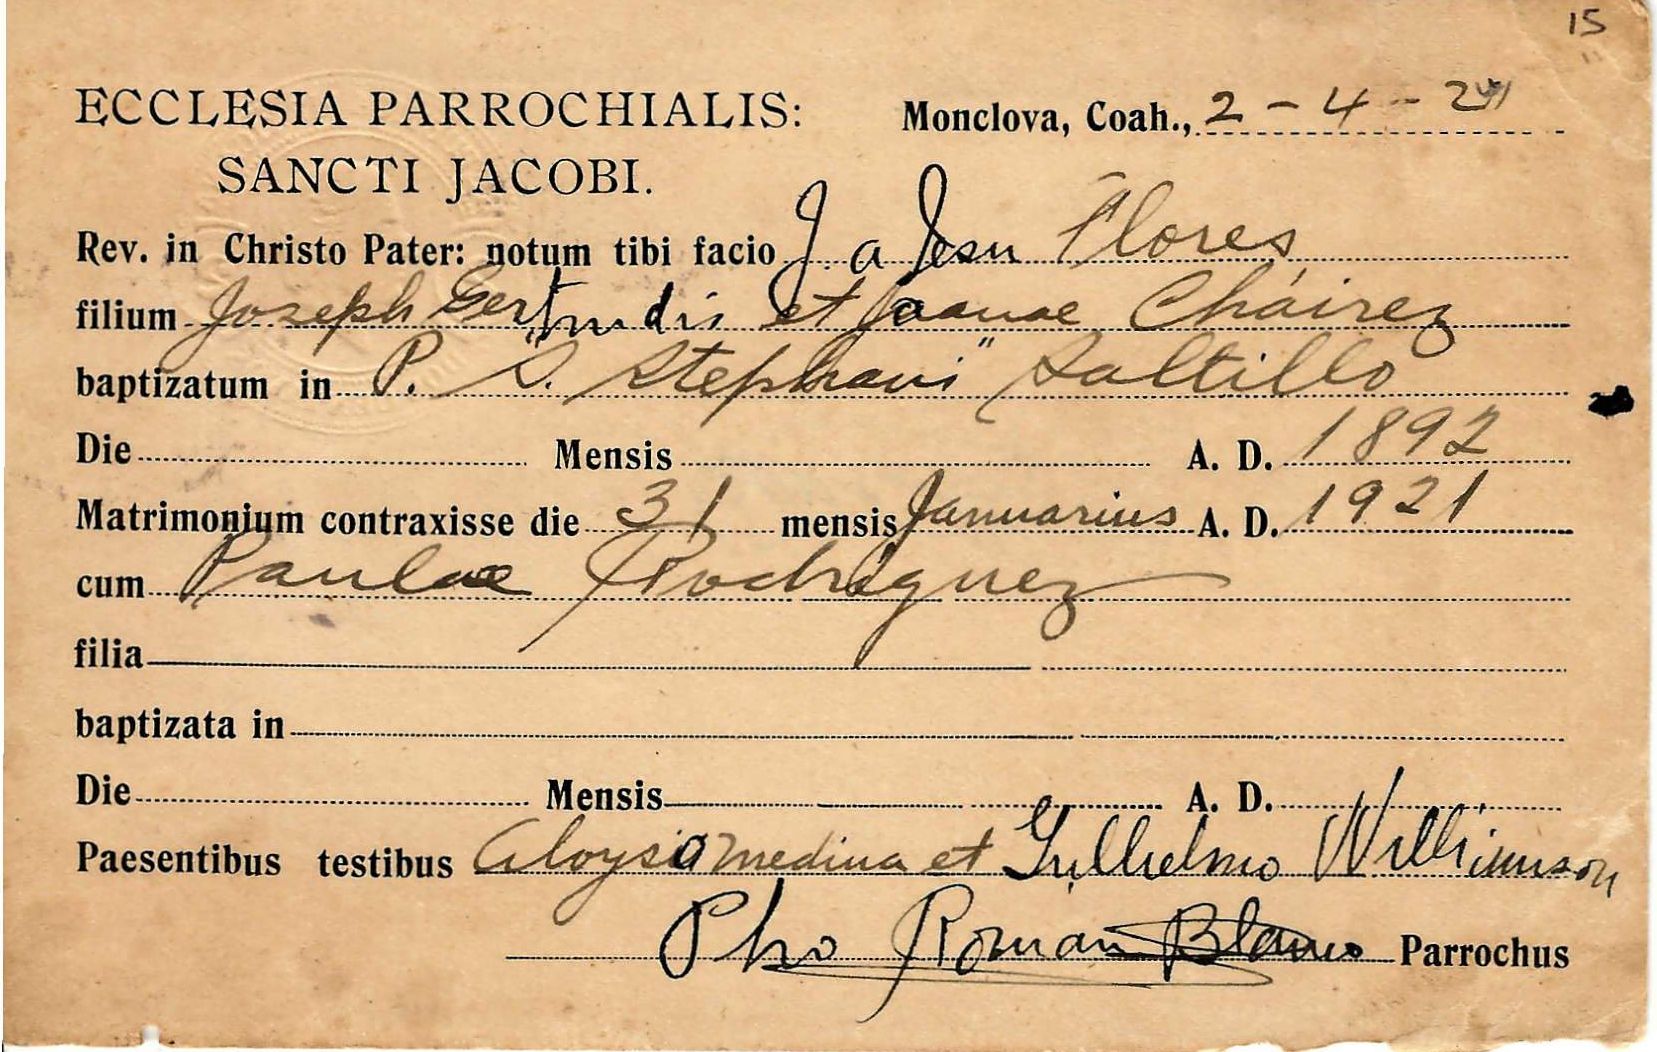 15
ECCLESIA PARROCHIALIS: Monclova, Coah., 2-4-21
SANCTI JACOBI.
Rev. in Christo Pater: notum tibi facio J. a Jesu Flores
filium Joseph Gertrudis et Joanae Cháirez
baptizatum in P. S. Stephani" Saltillo
Die Mensis A. D. 1892
Matrimonium contraxisse die 31 mensis Januarius A. D. 1921
cum Paulae Rodriguez
filia
baptizata in
Die Mensis A. D.
Paesentibus testibus Aloysio Medina et Gullielmo Williamson
Pbro Roman Blanco Parrochus